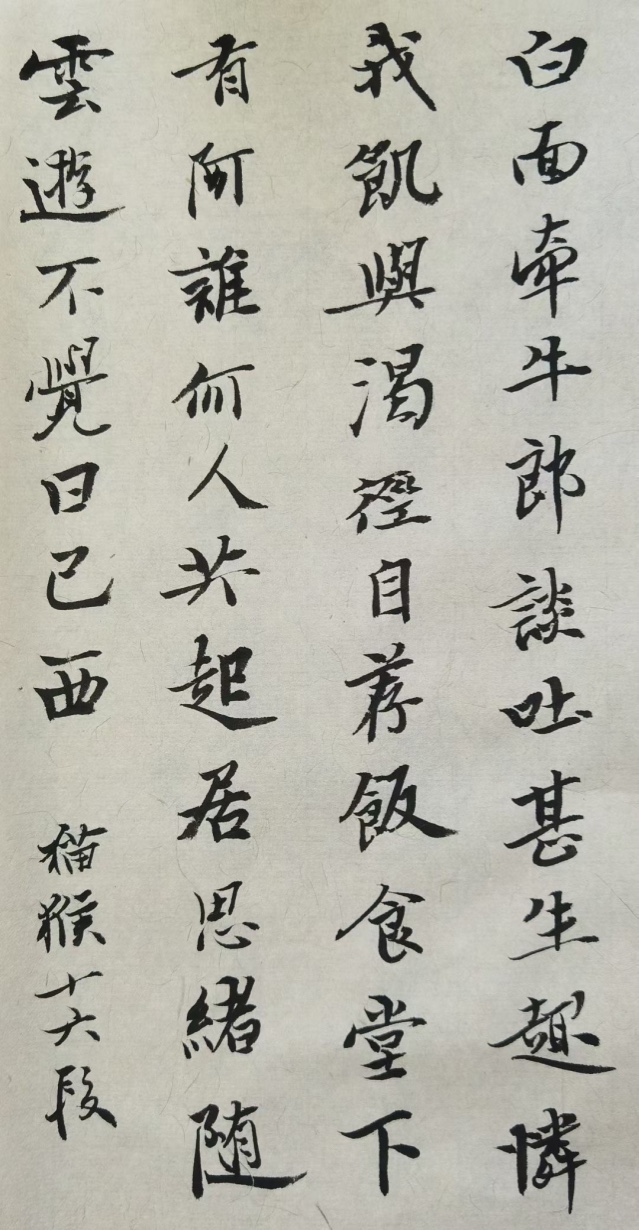 白面牽牛郎談吐甚生趣憐
我飢與渴徑自荐飯食堂下
有阿誰何人共起居思緒随
雲遊不覺日已西
猫猴十六段